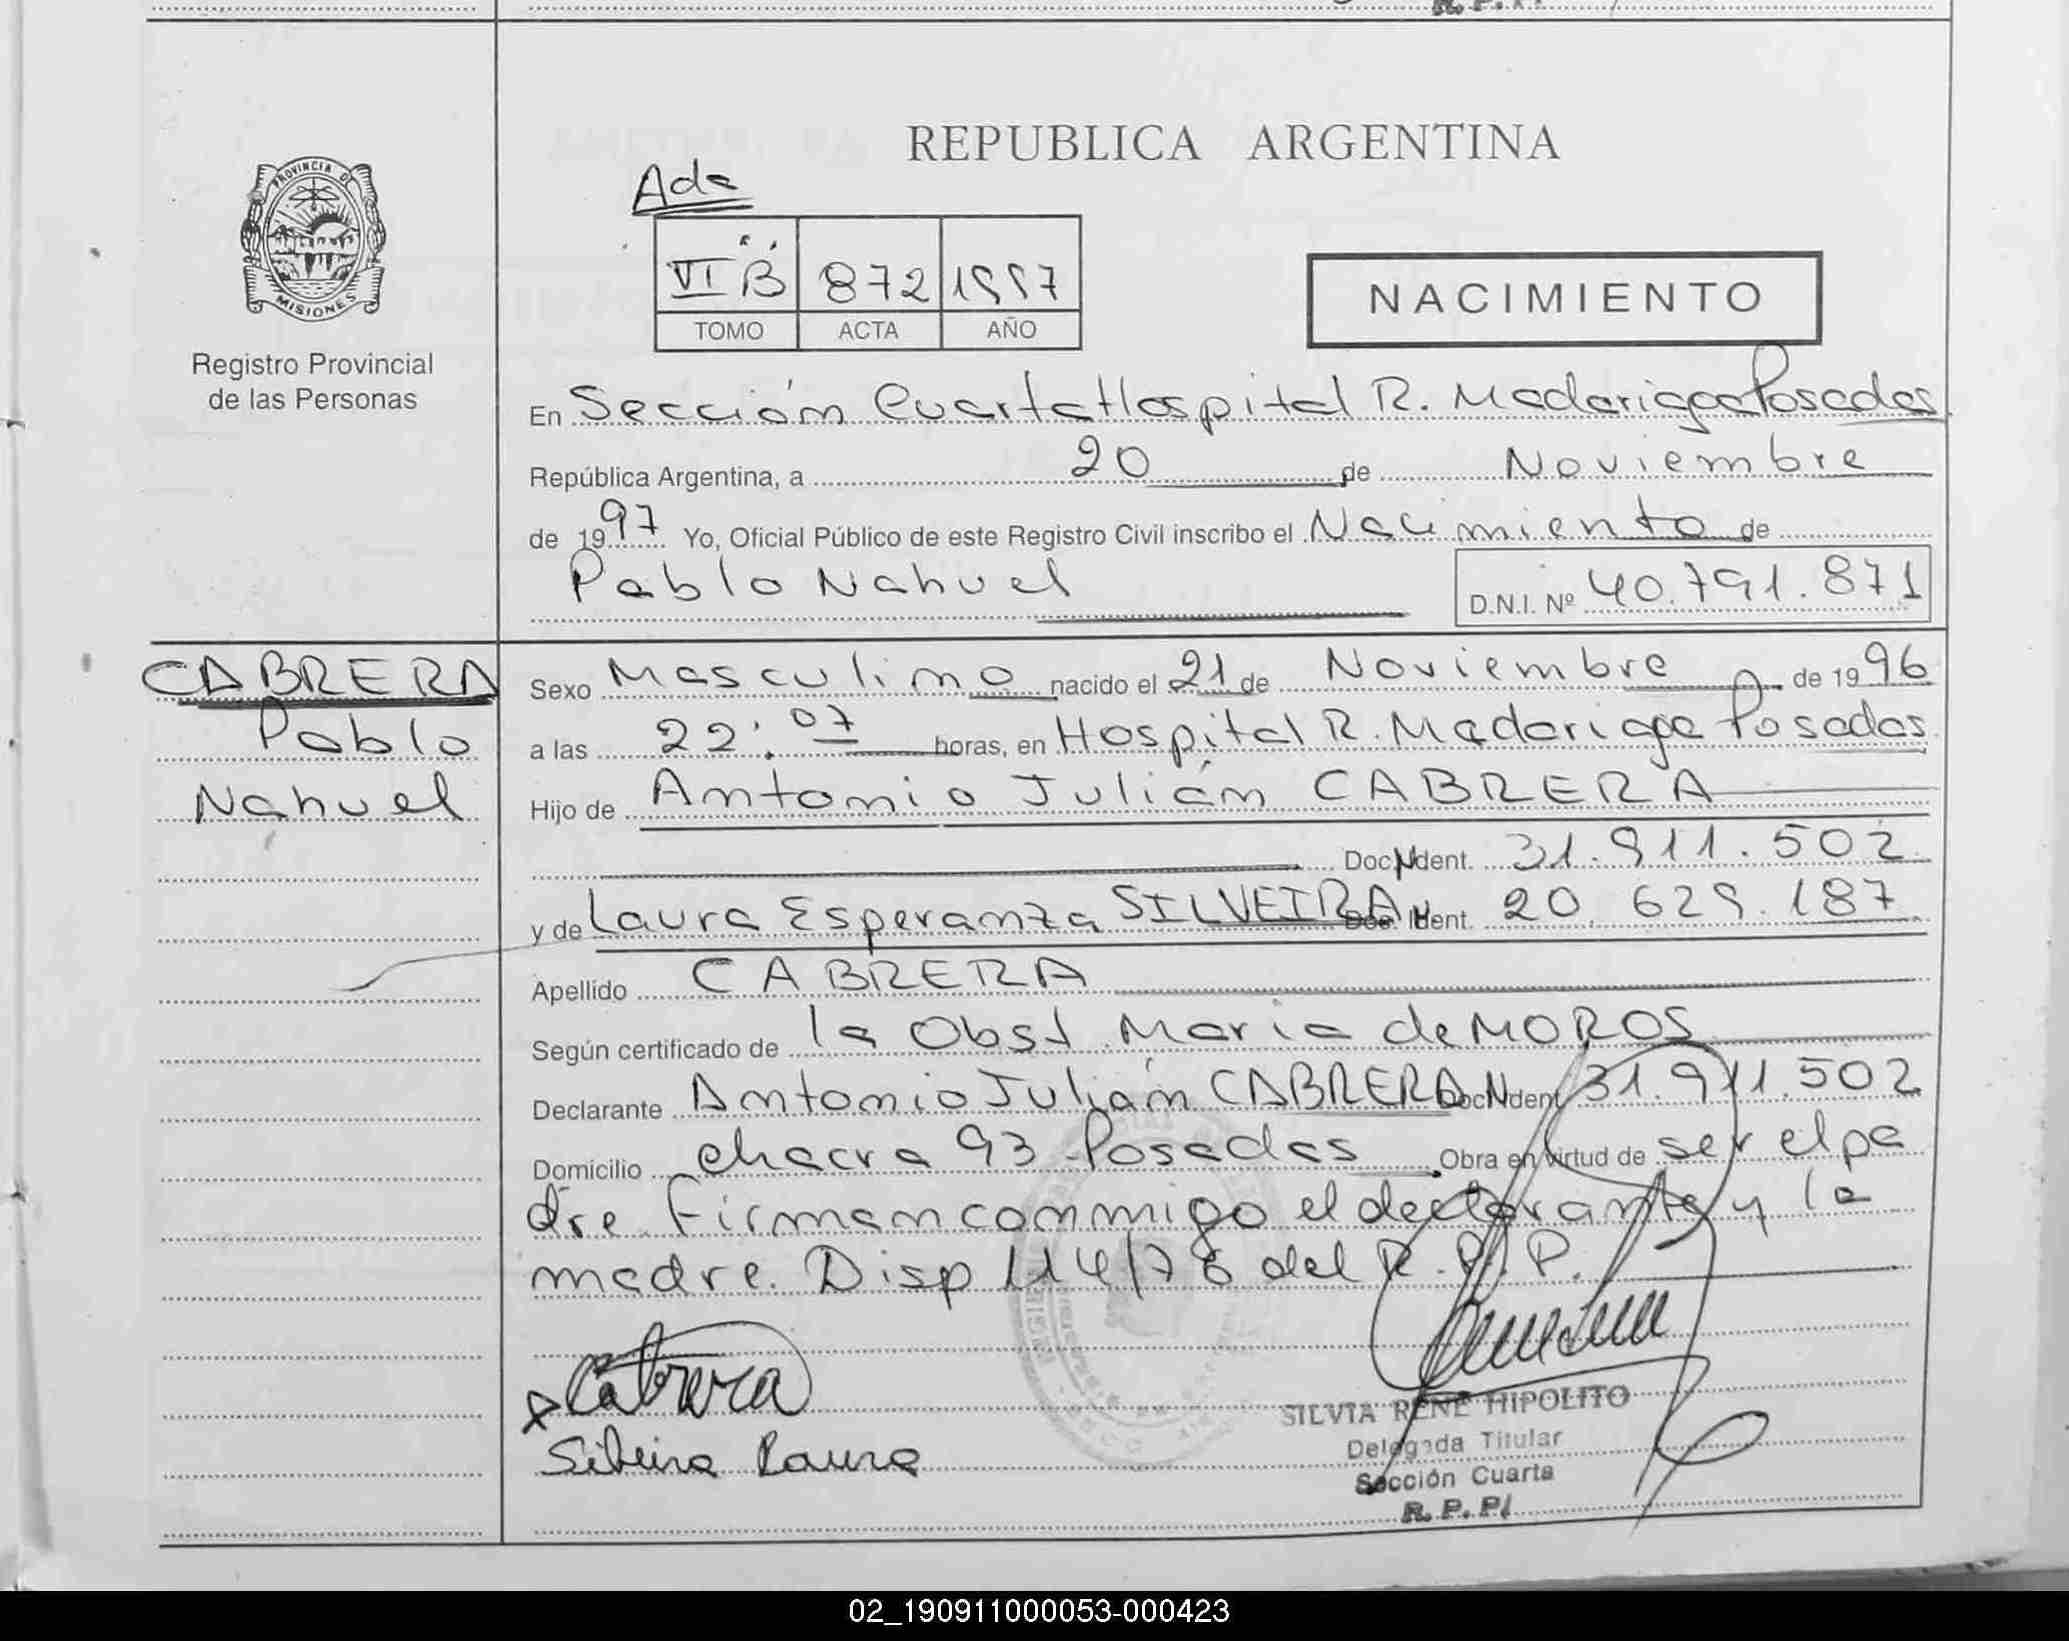 REPUBLICA ARGENTINA
PROVINCIA DE
MISIONES
Registro Provincial
de las Personas
Ada
VI "B" 872 1997
TOMO ACTA AÑO
NACIMIENTO
En Sección Cuarta Hospital R. Madariaga Posadas
República Argentina, a 20 de Noviembre
de 1997 Yo, Oficial Público de este Registro Civil inscribo el Nacimiento de
Pablo Nahuel D.N.I. Nº 40.791.871
CABRERA
Pablo
Nahuel
Sexo Masculino nacido el 21 de Noviembre de 1996
a las 22:07 horas, en Hospital R. Madariaga Posadas
Hijo de Antonio Julián CABRERA
Doc. Ident. 31.911.502
y de Laura Esperanza SILVEIRA Doc. Ident. 20.629.187
Apellido CABRERA
Según certificado de la Obst. Maria de MOROS
Declarante Antonio Julián CABRERA Doc. Ident. 31.911.502
Domicilio chacra 93 Posadas Obra en virtud de ser el pa
dre. Firman conmigo el declarante y la
madre. Disp 114/78 del R.P.P.
Cabrera
Silveira Laura
SILVIA RENE HIPOLITO
Delegada Titular
Sección Cuarta
R.P.P.
02_190911000053-000423